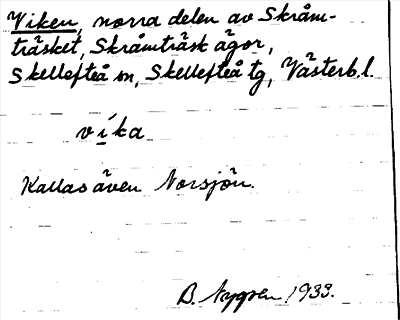 Viken, norra delen av Skråm-
träsket, Skråmträsk ägor,
Skellefteå sn, Skellefteå tg, Västerb. l.
víka
Kallas även Norsjön.
B. Nygren 1933.